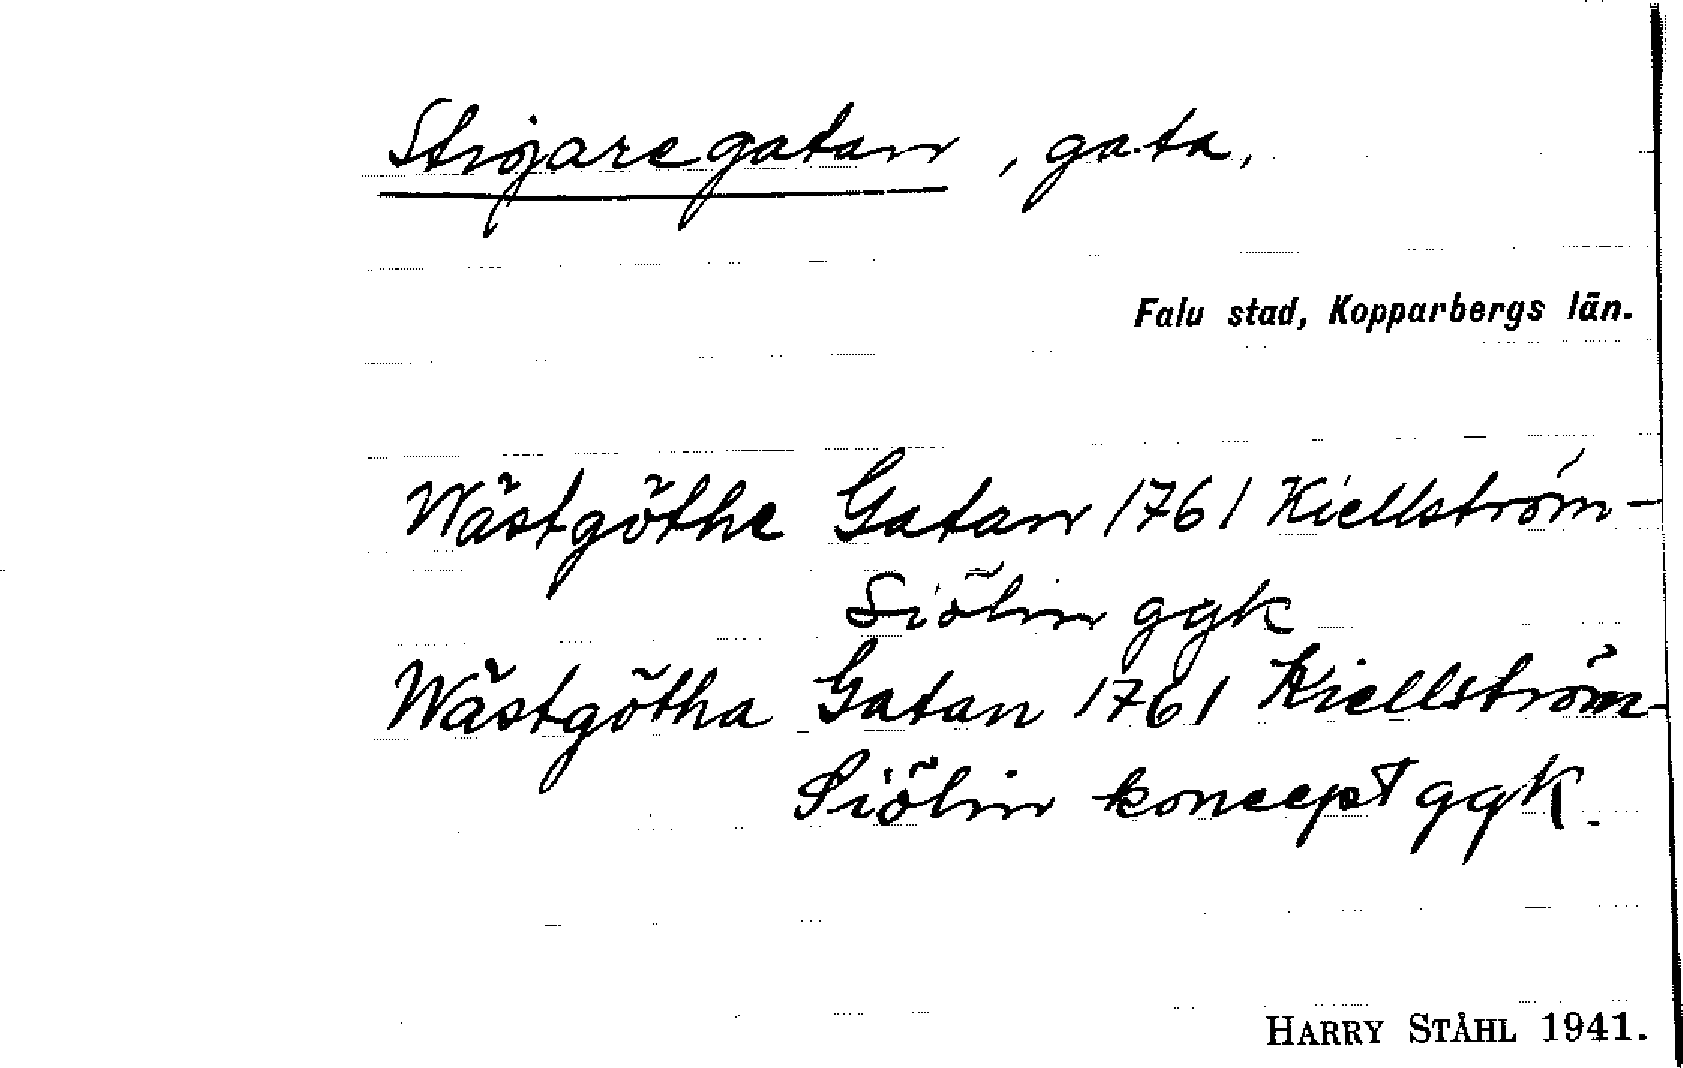 Stigaregatan, gata,
Falu stad, Kopparbergs län.
Wästgöthe Gatan 1761 Kiellström-
Siölin ggk
Wästgötha Gatan 1761 Kiellström-
Siölin koncept ggk.
HARRY STÅHL 1941.